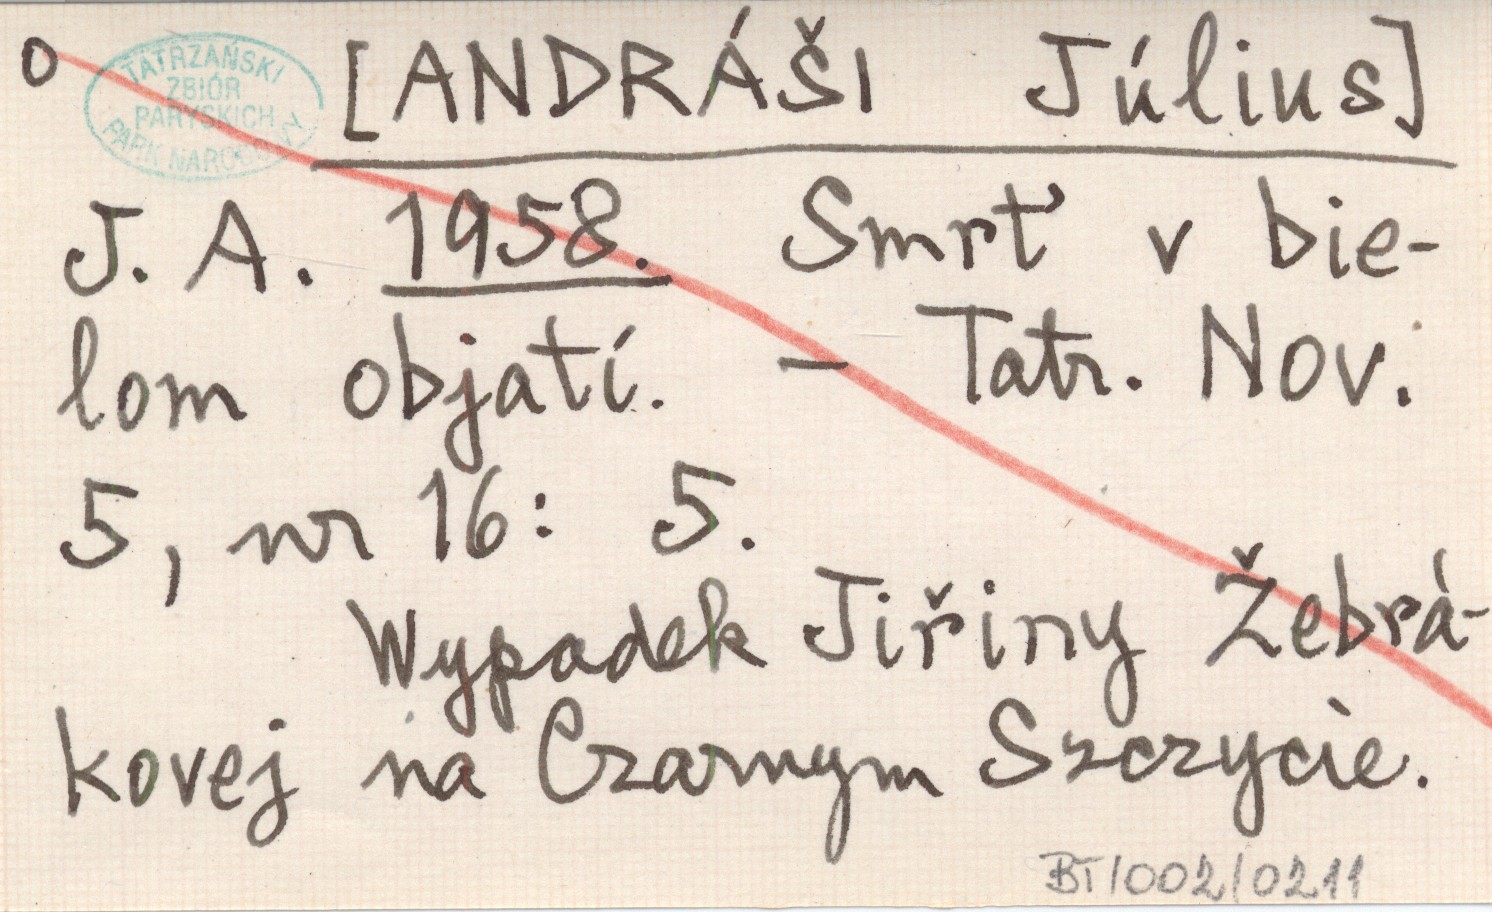 O
TATRZAŃSKI
ZBIÓR
PARYSKICH
PARK NARODOWY
[ANDRÁŠI Július]
J. A. 1958. Smrť v bie-
lom objatí. – Tatr. Nov.
5, nr 16: 5.
Wypadek Jiřiny Žebrá-
kovej na Czarnym Szczycie.
BT/002/0211